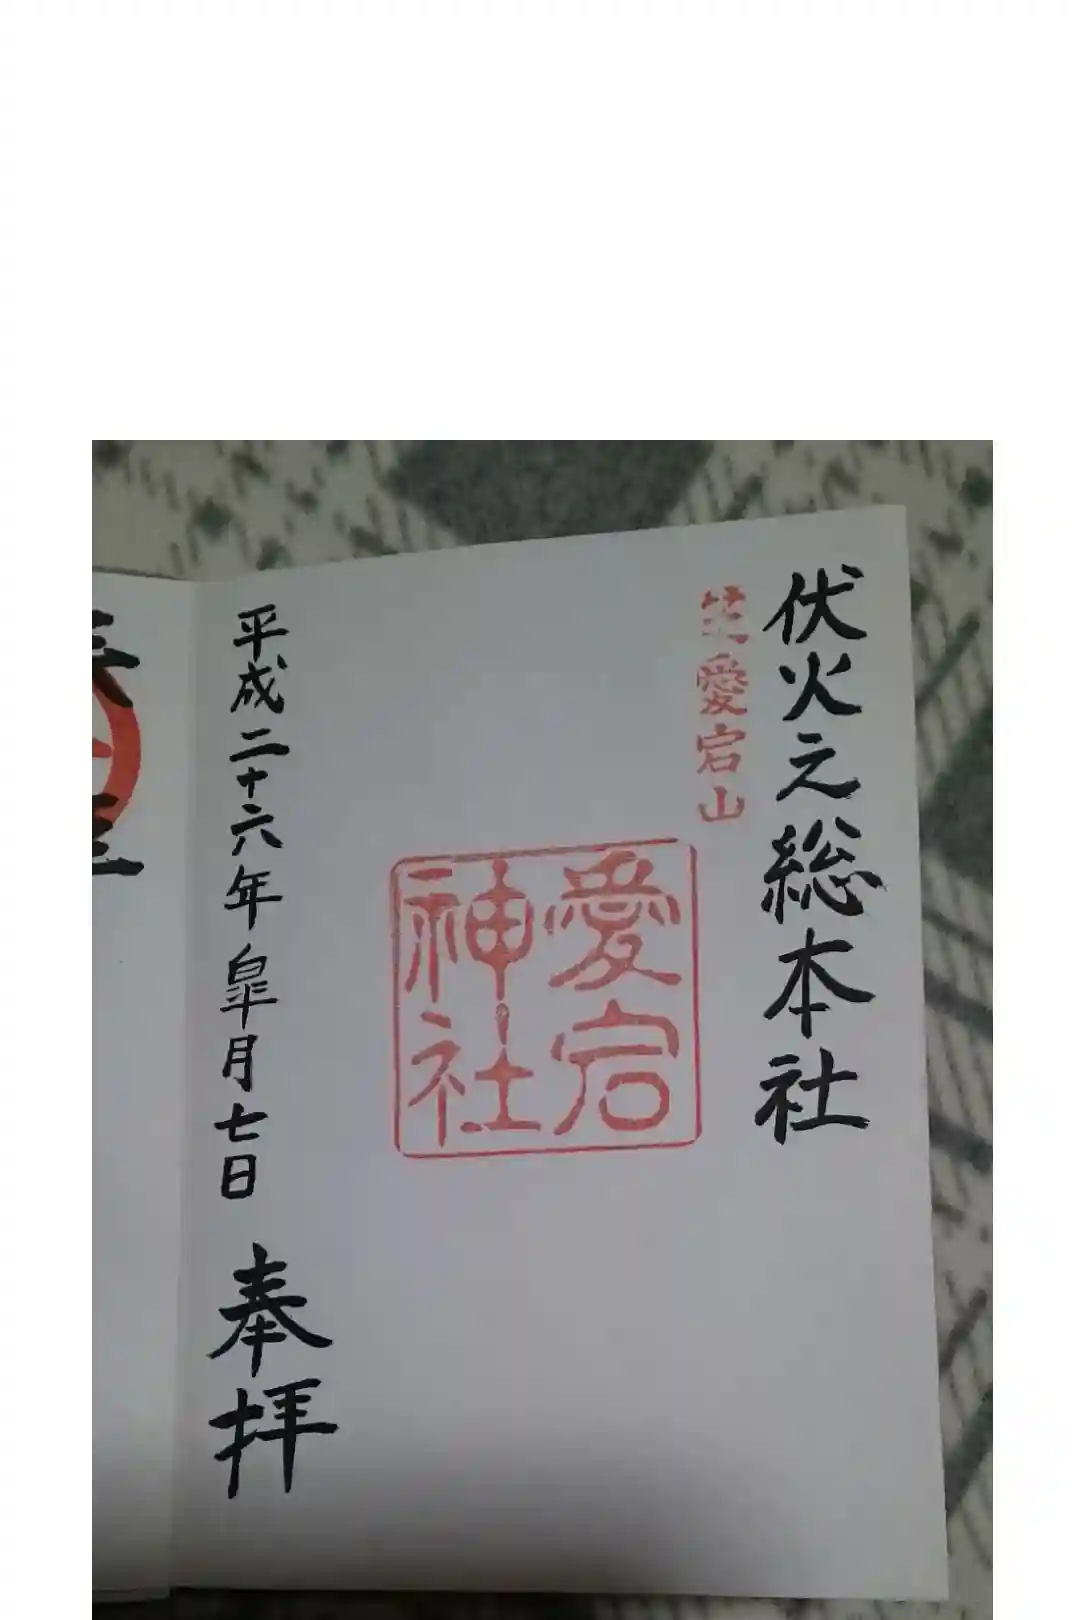 伏火之総本社
愛宕山
愛宕
神社
平成二十六年皐月七日
奉拝